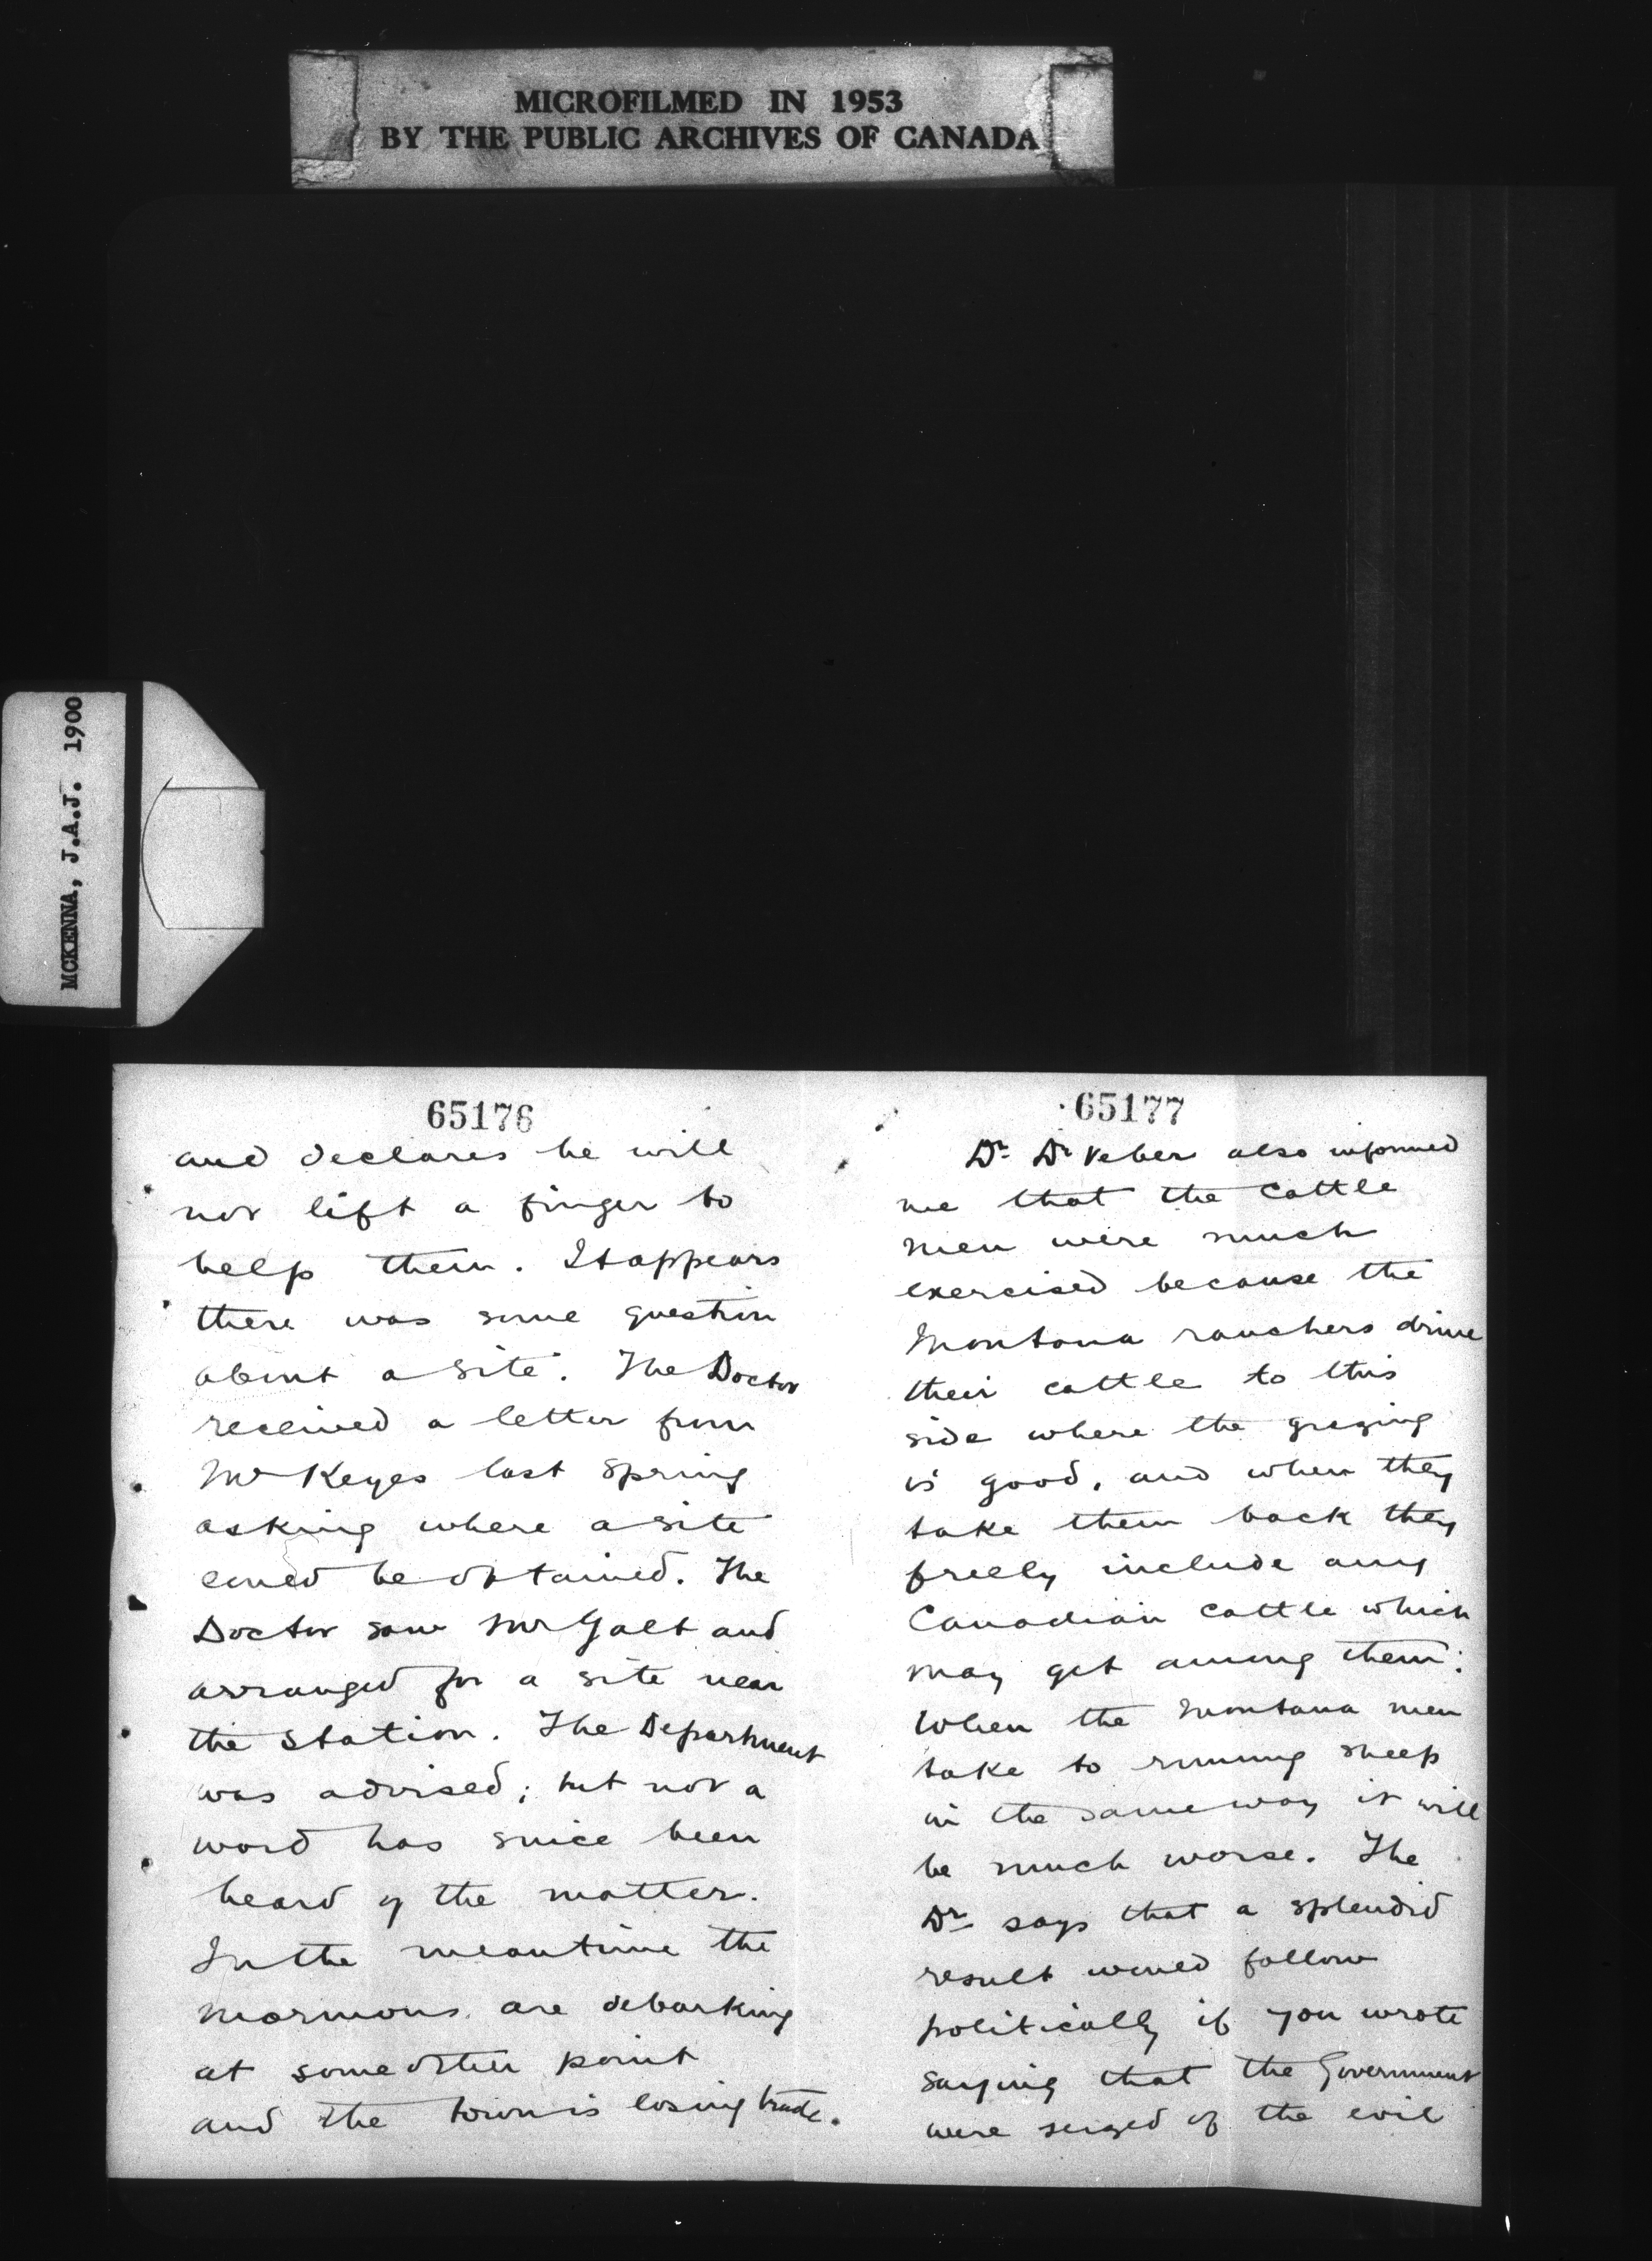 MICROFILMED IN 1953
BY THE PUBLIC ARCHIVES OF CANADA
MCKENNA, J.A.J. 1900
65176
and declares he will
not lift a finger to
help them. It appears
there was some question
about a site. The Doctor
received a letter from
Mr Keyes last Spring
asking where a site
could be obtained. The
Doctor saw Mr Galt and
arranged for a site near
the Station. The Department
was advised; but not a
word has since been
heard of the matter.
In the meantime the
Mormons are debarking
at some other point
and the town is losing trade.
65177
Dr De Veber also informed
me that the cattle
men were much
exercised because the
Montana ranchers drive
their cattle to this
side where the grazing
is good, and when they
take them back they
freely include any
Canadian cattle which
may get among them.
When the Montana men
take to running sheep
in the same way it will
be much worse. The
Dr says that a splendid
result would follow
politically if you wrote
saying that the Government
were seized of the evil